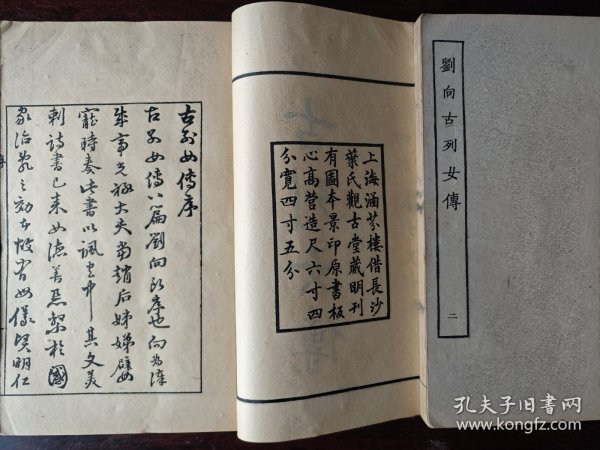 劉向古列女傳
二
上海涵芬樓借長沙
葉氏觀古堂藏明刊
有圖本景印原書板
心高營造尺六寸四
分寬四寸五分
古列女傳序
古列女傳八篇劉向所序也向為漢
成帝光祿大夫當趙后姊娣嬖
寵時奏此書以諷宮中其文美
刺詩書已來女德善惡繫於國
家治亂之効者故有母儀賢明仁
孔夫子旧书网
www.kongfz.com